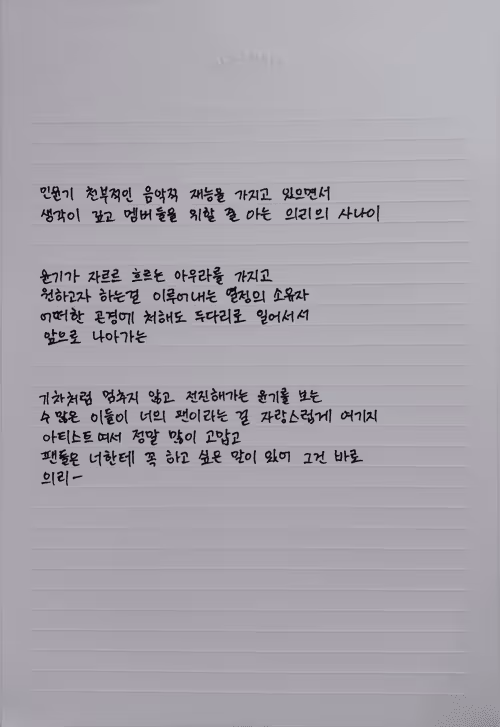 민윤기 천부적인 음악적 재능을 가지고 있으면서
생각이 깊고 멤버들을 위할 줄 아는 의리의 사나이
윤기가 자르르 흐르는 아우라를 가지고
원하고자 하는걸 이루어내는 열정의 소유자
어떠한 곤경에 처해도 두다리로 일어서서
앞으로 나아가는
기차처럼 멈추지 않고 전진해가는 윤기를 보는
수많은 이들이 너의 팬이라는 걸 자랑스럽게 여기지
아티스트여서 정말 많이 고맙고
팬들은 너한테 꼭 하고 싶은 말이 있어 그건 바로
의리-